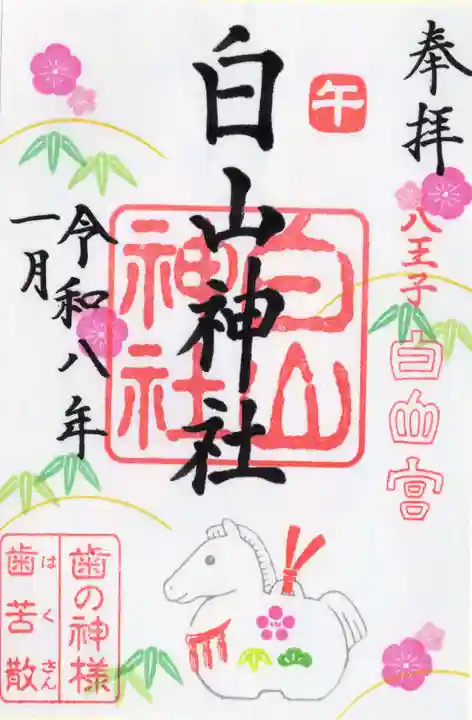 奉拝
八王子
白山宮
午
白山神社
白山神社
令和八年
一月
歯の神様
はくさん
歯苦散